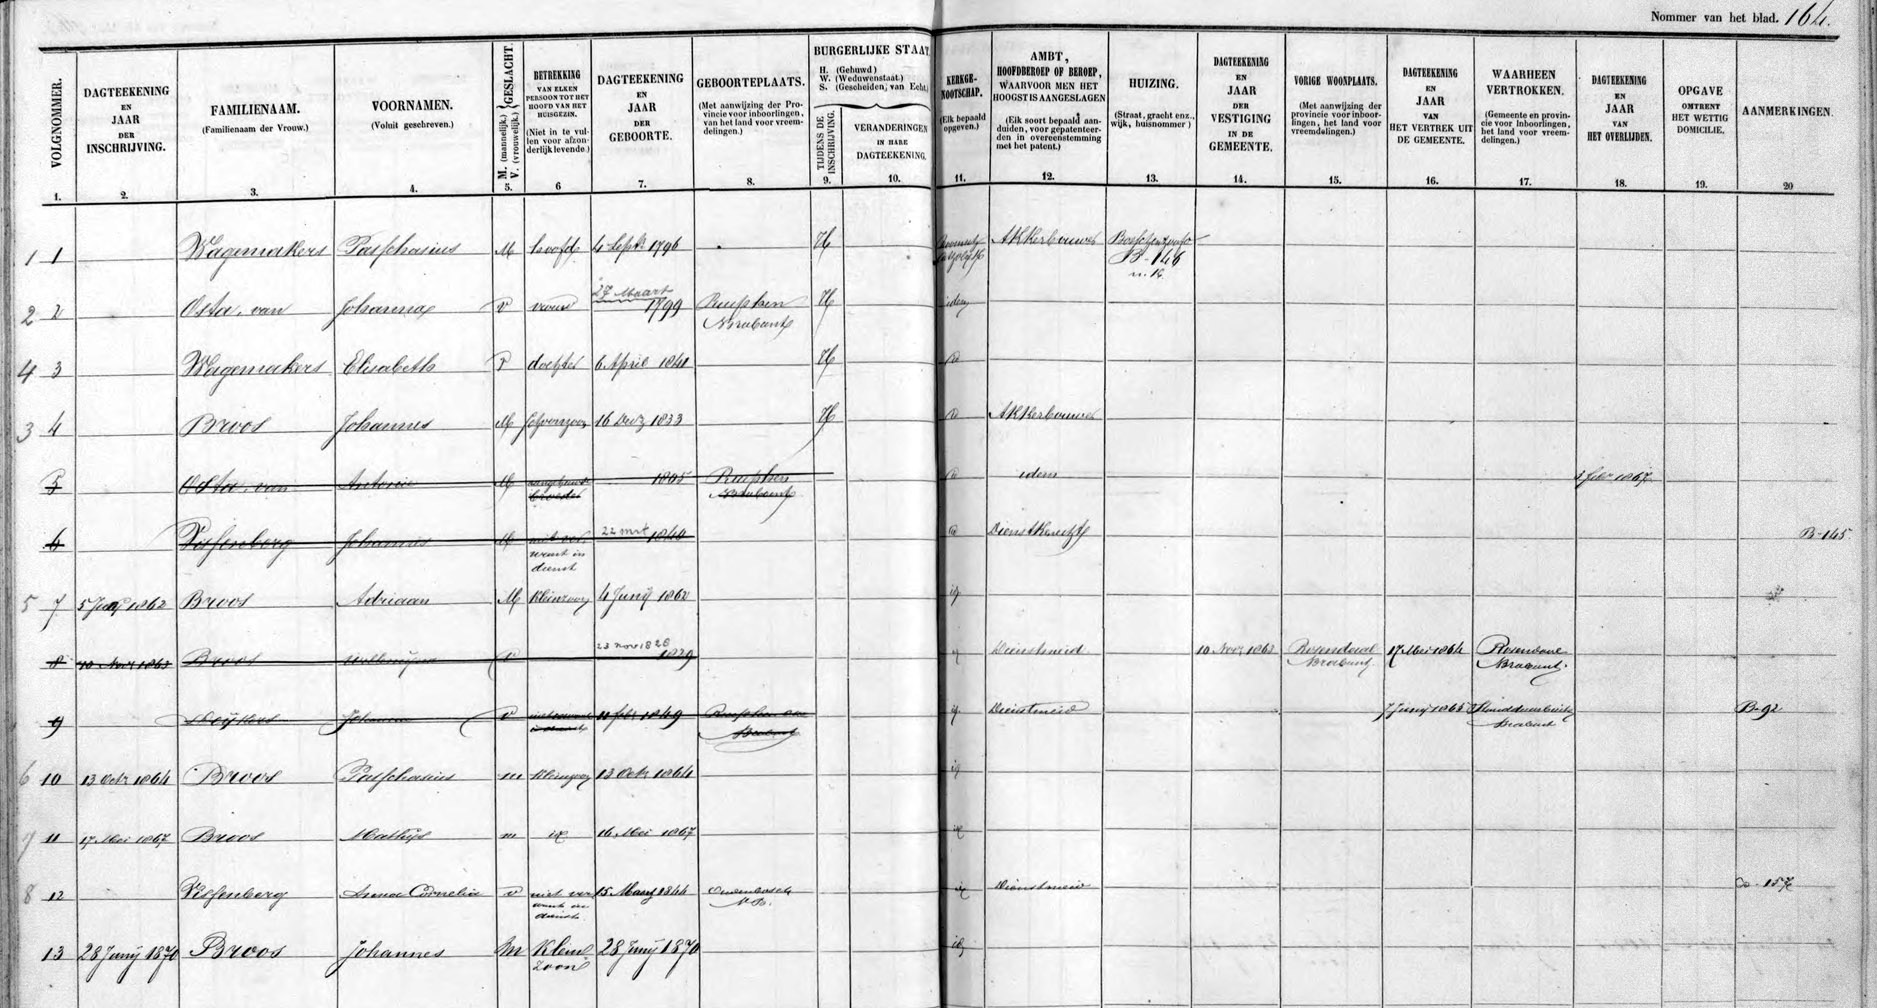 Nommer van het blad. 164.
VOLGNOMMER.
1.
DAGTEEKENING
EN
JAAR
DER
INSCHRIJVING.
2.
FAMILIENAAM.
(Familienaam der Vrouw.)
3.
VOORNAMEN.
(Voluit geschreven.)
4.
GESLACHT.
M. (mannelijk.)
V. (vrouwelijk.)
5.
BETREKKING
VAN ELKEN
PERSOON TOT HET
HOOFD VAN HET
HUISGEZIN.
(Niet in te vul-
len voor afzon-
derlijk levende.)
6
DAGTEEKENING
EN
JAAR
DER
GEBOORTE.
7.
GEBOORTEPLAATS.
(Met aanwijzing der Pro-
vincie voor inboorlingen,
van het land voor vreem-
delingen.)
8.
BURGERLIJKE STAAT.
H. (Gehuwd.)
W. (Weduwenstaat.)
S. (Gescheiden, van Echt.)
TIJDENS DE
INSCHRIJVING.
9.
VERANDERINGEN
IN HARE
DAGTEEKENING.
10.
KERKGE-
NOOTSCHAP.
(Elk bepaald
opgeven.)
11.
AMBT,
HOOFDBEROEP OF BEROEP,
WAARVOOR MEN HET
HOOGST IS AANGESLAGEN
(Elk soort bepaald aan-
duiden, voor gepatenteer-
den in overeenstemming
met het patent.)
12.
HUIZING.
(Straat, gracht enz.,
wijk, huisnommer.)
13.
DAGTEEKENING
EN
JAAR
DER
VESTIGING
IN DE
GEMEENTE.
14.
VORIGE WOONPLAATS.
(Met aanwijzing der
provincie voor inboor-
lingen, het land voor
vreemdelingen.)
15.
DAGTEEKENING
EN
JAAR
VAN
HET VERTREK UIT
DE GEMEENTE.
16.
WAARHEEN
VERTROKKEN.
(Gemeente en provin-
cie voor Inboorlingen,
het land voor vreem-
delingen.)
17.
DAGTEEKENING
EN
JAAR
VAN
HET OVERLIJDEN.
18.
OPGAVE
OMTRENT
HET WETTIG
DOMICILIE.
19.
AANMERKINGEN.
20
1 1 Wagemakers Passchasius M hoofd 4 Sept 1796 H Akkerbouwer
B-146
2 2 Osta, van Johanna V vrouw 27 Maart 1799 Rucphen H idem
NBrabant
4 3 Wagemakers Elisabeth V dochter 6 April 1841 H
3 4 Broos Johannes M schoonzoon 16 1833 H Akkerbouwer
5 Osta, van Antonie M 1805 Rucphen idem 3 febr 1867
broeder NBrabant
6 Johannes M niet ver 22 mrt 1844 Dienstknecht B-145
want in
dienst
5 7 5 Junij 1862 Broos Adriaan M kleinzoon 4 Junij 1862 id
8 10 Nov 1863 Broos V 23 nov 1828 1829 Dienstmeid 10 Nov 1863 Rosendaal 17 Mei 1864 Rosendaal
NBrabant NBrabant
9 Johanna V 11 febr 1849 Rucphen id Dienstmeid 7 Junij 1865 B-92
Brabant Brabant
6 10 13 Octr 1864 Broos Passchasius m kleinzoon 13 Octr 1864 id
7 11 17 Mei 1867 Broos Mathijs m id 16 Mei 1867 id
8 12 Anna Cornelia v niet ver 15 Maart 1844 Oudenbosch Dienstmeid 157
want in NB.
dienst
13 28 Junij 1870 Broos Johannes M Klein 28 Junij 1870 id
zoon